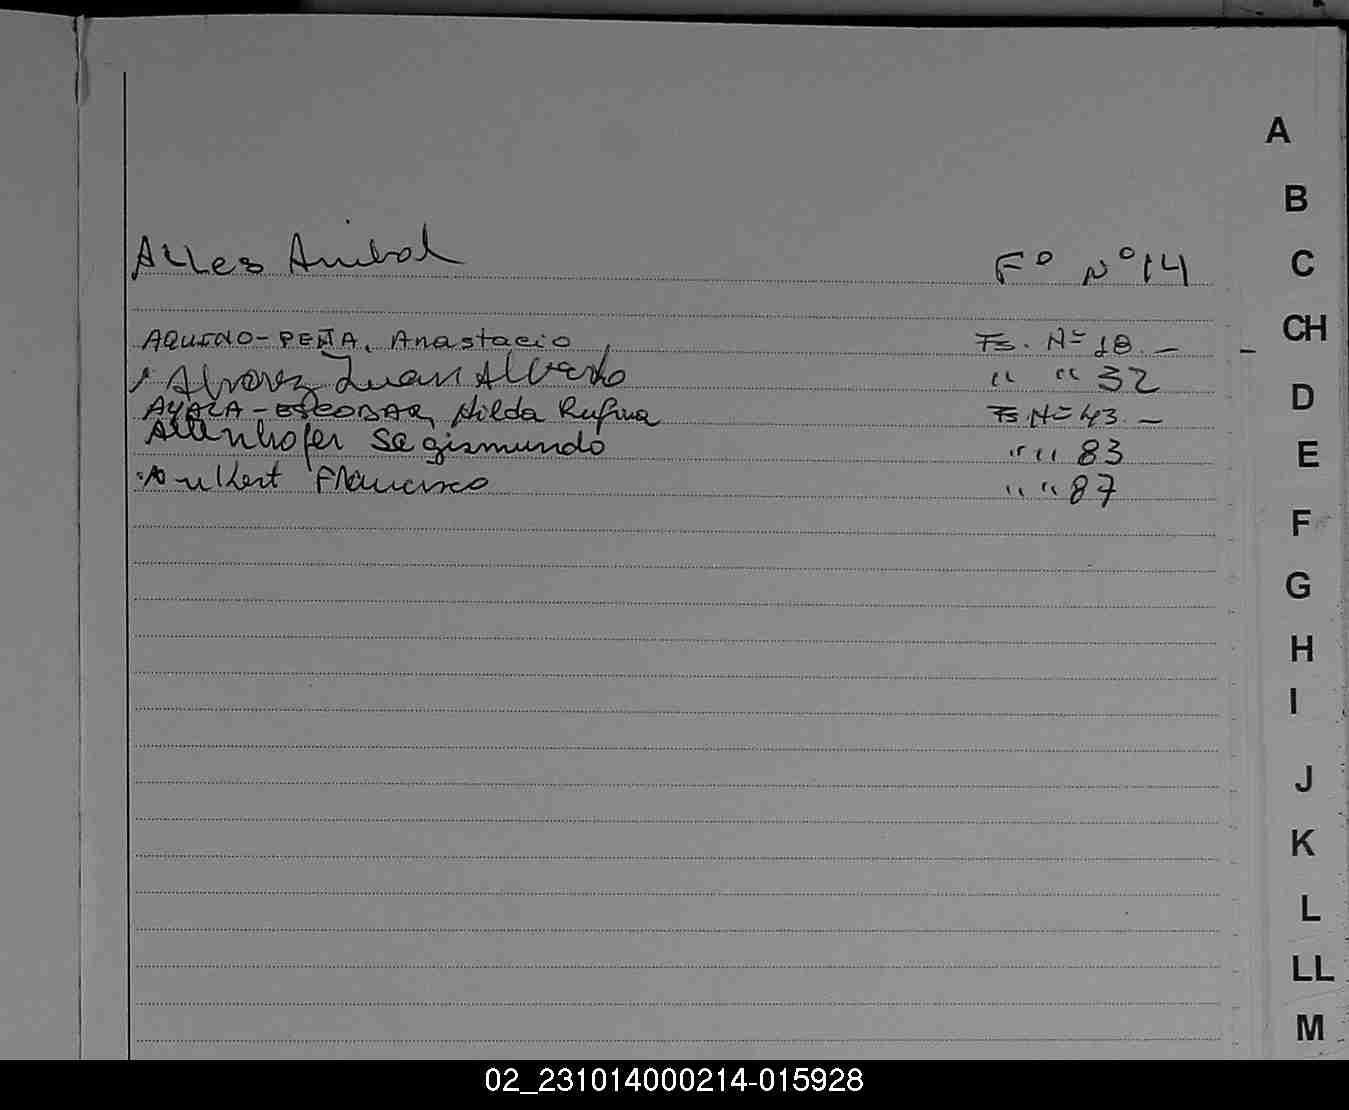 A
B
Alles Anibal Fº Nº 14
C
AQUINO-PEÑA, Anastacio Fs. Nº 18.—
CH
Alvarez Juan Alberto " " 32
D
AYALA-ESCOBAR, Hilda Rufina Fs Nº 43.—
Altenhofer Segismundo " " 83
E
Francisco " " 87
F
G
H
I
J
K
L
LL
M
02_231014000214-015928